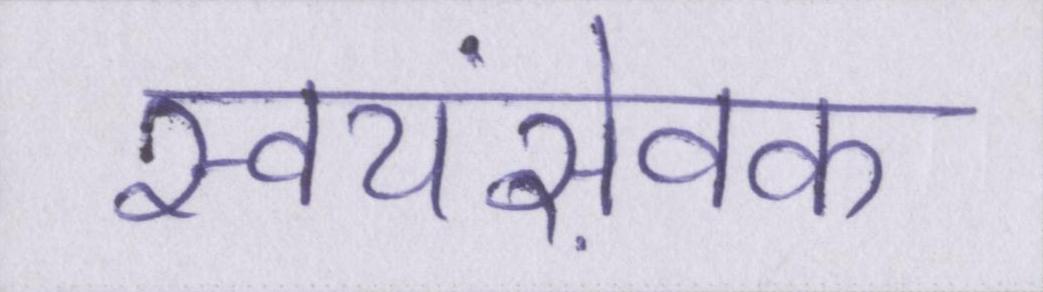 स्वयंसे़वक